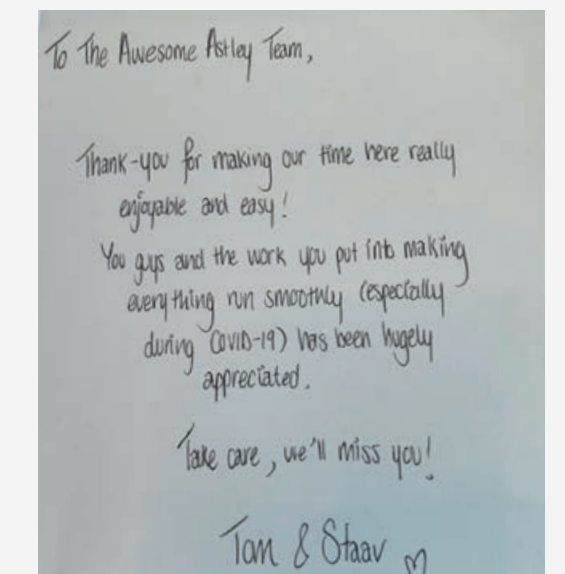 To The Awesome Astley Team,
Thank-you for making our time here really
enjoyable and easy!
You guys and the work you put into making
everything run smoothly (especially
during COVID-19) has been hugely
appreciated.
Take care, we'll miss you!
Tom & Staav ♡